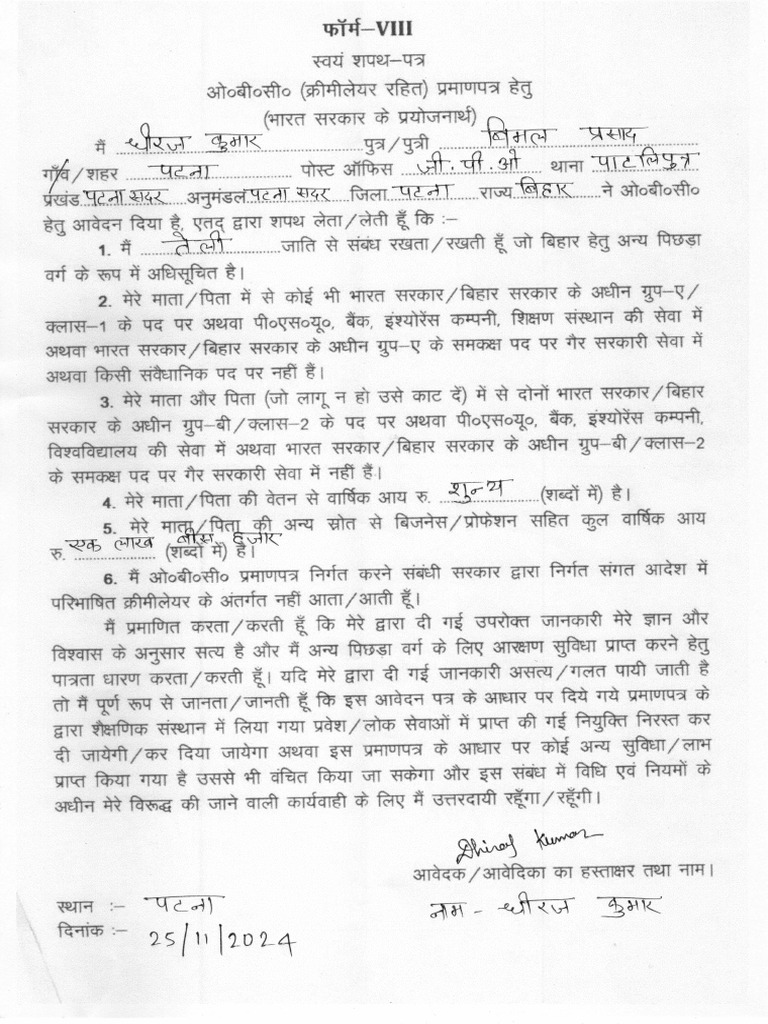 फॉर्म–VIII
स्वयं शपथ–पत्र
ओ०बी०सी० (क्रीमीलेयर रहित) प्रमाणपत्र हेतु
(भारत सरकार के प्रयोजनार्थ)
मैं धीरज कुमार पुत्र/पुत्री बिमल प्रसाद
गाँव/शहर पटना पोस्ट ऑफिस जी.पी.ओ थाना पाटलिपुत्र
प्रखंड पटना सदर अनुमंडल पटना सदर जिला पटना राज्य बिहार ने ओ०बी०सी०
हेतु आवेदन दिया है, एतद् द्वारा शपथ लेता/लेती हूँ कि :–
1. मैं तेली जाति से संबंध रखता/रखती हूँ जो बिहार हेतु अन्य पिछड़ा
वर्ग के रूप में अधिसूचित है।
2. मेरे माता/पिता में से कोई भी भारत सरकार/बिहार सरकार के अधीन ग्रुप–ए/
क्लास–1 के पद पर अथवा पी०एस०यू०, बैंक, इंश्योरेंस कम्पनी, शिक्षण संस्थान की सेवा में
अथवा भारत सरकार/बिहार सरकार के अधीन ग्रुप–ए के समकक्ष पद पर गैर सरकारी सेवा में
अथवा किसी संवैधानिक पद पर नहीं हैं।
3. मेरे माता और पिता (जो लागू न हो उसे काट दें) में से दोनों भारत सरकार/बिहार
सरकार के अधीन ग्रुप–बी/क्लास–2 के पद पर अथवा पी०एस०यू०, बैंक, इंश्योरेंस कम्पनी,
विश्वविद्यालय की सेवा में अथवा भारत सरकार/बिहार सरकार के अधीन ग्रुप–बी/क्लास–2
के समकक्ष पद पर गैर सरकारी सेवा में नहीं हैं।
4. मेरे माता/पिता की वेतन से वार्षिक आय रु. शुन्य (शब्दों में) है।
5. मेरे माता/पिता की अन्य स्रोत से बिजनेस/प्रोफेशन सहित कुल वार्षिक आय
रु. एक लाख बीस हजार (शब्दों में) है।
6. मैं ओ०बी०सी० प्रमाणपत्र निर्गत करने संबंधी सरकार द्वारा निर्गत संगत आदेश में
परिभाषित क्रीमीलेयर के अंतर्गत नहीं आता/आती हूँ।
मैं प्रमाणित करता/करती हूँ कि मेरे द्वारा दी गई उपरोक्त जानकारी मेरे ज्ञान और
विश्वास के अनुसार सत्य है और मैं अन्य पिछड़ा वर्ग के लिए आरक्षण सुविधा प्राप्त करने हेतु
पात्रता धारण करता/करती हूँ। यदि मेरे द्वारा दी गई जानकारी असत्य/गलत पायी जाती है
तो मैं पूर्ण रूप से जानता/जानती हूँ कि इस आवेदन पत्र के आधार पर दिये गये प्रमाणपत्र के
द्वारा शैक्षणिक संस्थान में लिया गया प्रवेश/लोक सेवाओं में प्राप्त की गई नियुक्ति निरस्त कर
दी जायेगी/कर दिया जायेगा अथवा इस प्रमाणपत्र के आधार पर कोई अन्य सुविधा/लाभ
प्राप्त किया गया है उससे भी वंचित किया जा सकेगा और इस संबंध में विधि एवं नियमों के
अधीन मेरे विरूद्ध की जाने वाली कार्यवाही के लिए मैं उत्तरदायी रहूँगा/रहूँगी।
Dhiraj Kumar
आवेदक/आवेदिका का हस्ताक्षर तथा नाम।
स्थान :– पटना
नाम – धीरज कुमार
दिनांक :– 25/11/2024